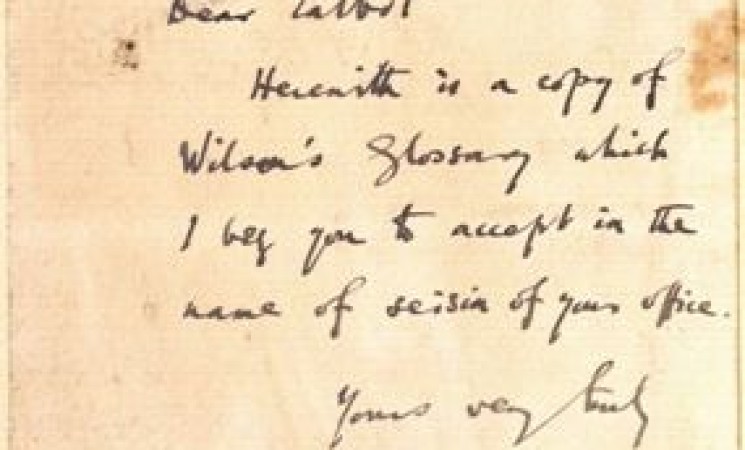 Dear Talbot
Herewith is a copy of
Wilson's Glossary which
I beg you to accept in the
name of seisin of your office.
Yours very truly